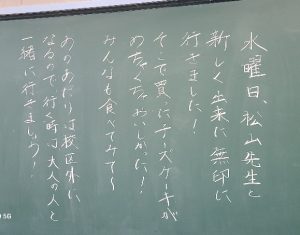 水曜日、松山先生と
新しく出来た無印に
行きました！
そこで買ったチーズケーキが
めちゃくちゃおいしかった！
みんなも食べてみて～
あのあたりは校区外に
なるので行く時は大人の人と
一緒に行きましょう！
5G